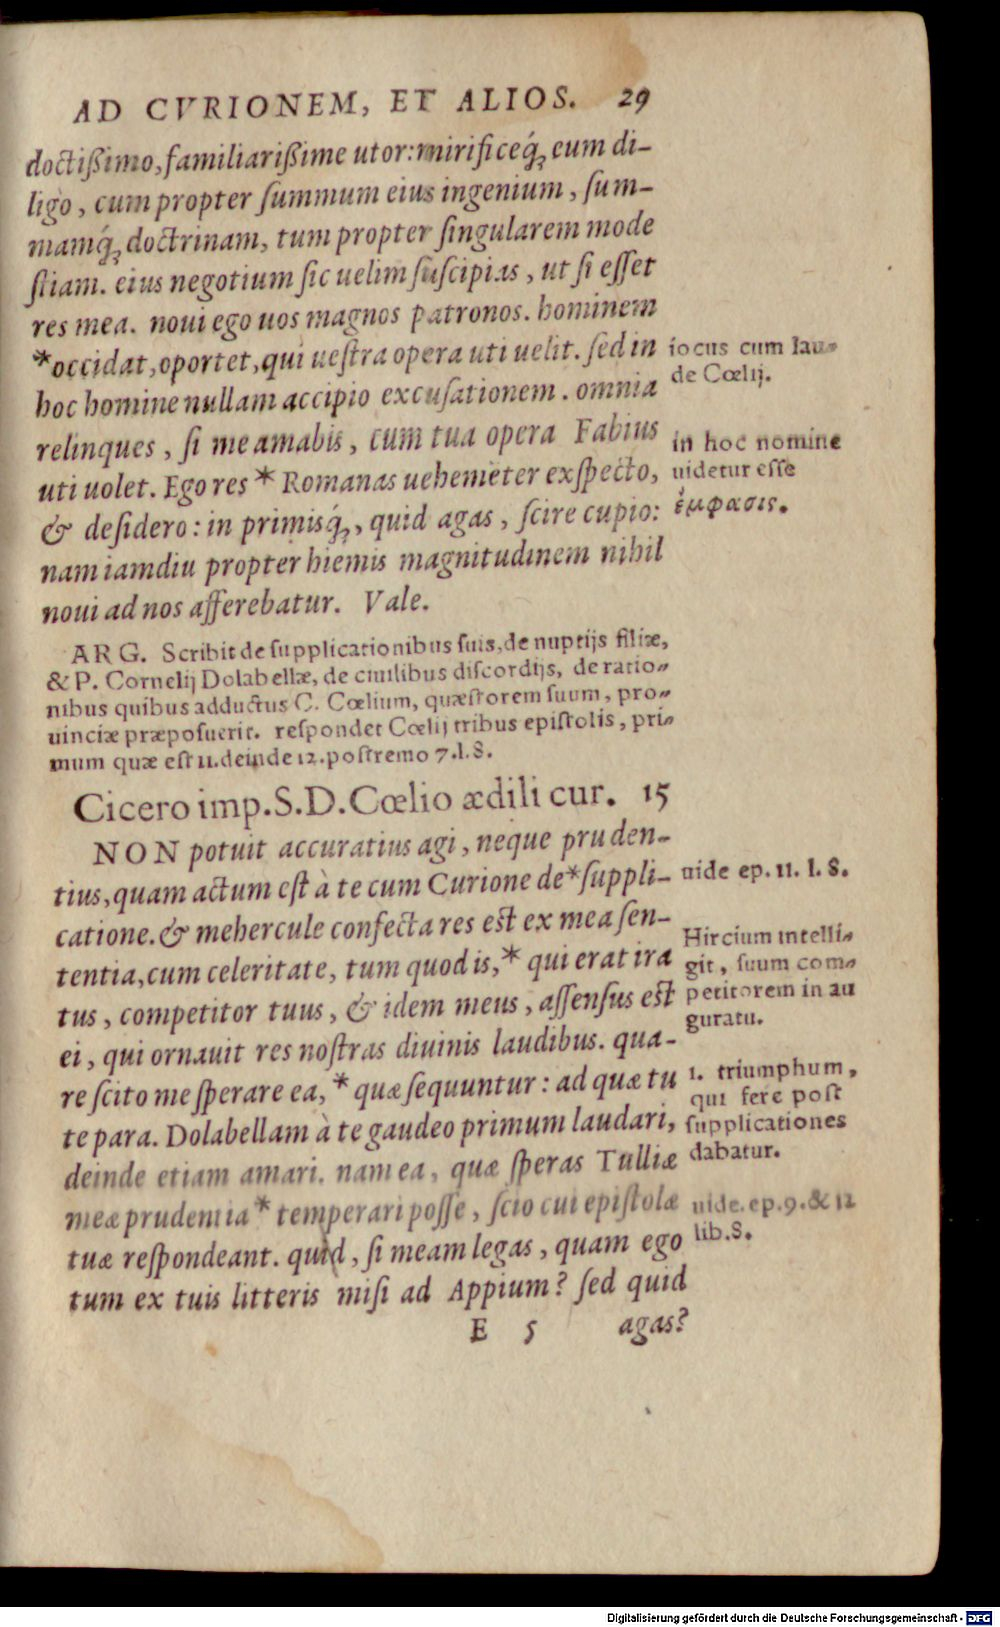 AD CVRIONEM, ET ALIOS. 29
doctißimo, familiarißime utor: mirificeq́; eum di-
ligo, cum propter ſummum eius ingenium, ſum-
mamq́; doctrinam, tum propter ſingularem mode
ſtiam. eius negotium ſic uelim ſuſcipias, ut ſi eſſet
res mea. noui ego uos magnos patronos. hominem
*occidat, oportet, qui ueſtra opera uti uelit. ſed in
hoc homine nullam accipio excuſationem. omnia
relinques, ſi me amabis, cum tua opera Fabius
uti uolet. Ego res * Romanas uehemēter exſpecto,
& deſidero: in primisq́;, quid agas, ſcire cupio:
nam iamdiu propter hiemis magnitudinem nihil
noui ad nos afferebatur. Vale.
iocus cum lau-
de Cœlij.
in hoc nomine
uidetur eſſe
ἔμφασις.
ARG. Scribit de ſupplicationibus ſuis, de nuptijs filiæ,
& P. Cornelij Dolabellæ, de ciuilibus diſcordijs, de ratio-
nibus quibus adductus C. Cœlium, quæſtorem ſuum, pro-
uinciæ præpoſuerit. reſpondet Cœlij tribus epiſtolis, pri-
mum quæ eſt 11. deinde 12. poſtremo 7. l. 8.
Cicero imp. S. D. Cœlio ædili cur. 15
NON potuit accuratius agi, neque pruden-
tius, quam actum eſt à te cum Curione de * ſuppli-
catione. & mehercule confecta res eſt ex mea ſen-
tentia, cum celeritate, tum quod is, * qui erat ira
tus, competitor tuus, & idem meus, aſſenſus eſt
ei, qui ornauit res noſtras diuinis laudibus. qua-
re ſcito me ſperare ea, * quæ ſequuntur: ad quæ tu
te para. Dolabellam à te gaudeo primum laudari,
deinde etiam amari. nam ea, quæ ſperas Tulliæ
meæ prudentia * temperari poſſe, ſcio cui epiſtolæ
tuæ reſpondeant. quid, ſi meam legas, quam ego
tum ex tuis litteris miſi ad Appium? ſed quid
uide ep. 11. l. 8.
Hircium intelli-
git, ſuum com-
petitorem in au
guratu.
1. triumphum,
qui fere poſt
ſupplicationes
dabatur.
uide. ep. 9. & 12
lib. 8.
E 5 agas?
Digitalisierung gefördert durch die Deutsche Forschungsgemeinschaft - DFG